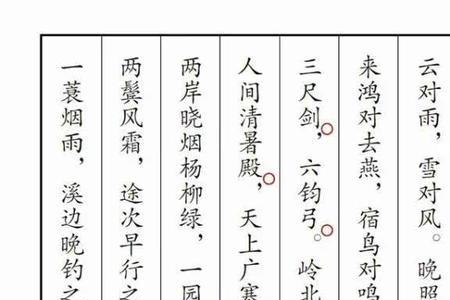 云对雨，雪对风。晚照
来鸿对去燕，宿鸟对鸣
三尺剑，六钧弓。岭北
人间清暑殿，天上广寒
两岸晓烟杨柳绿，一园
两鬓风霜，途次早行之
一蓑烟雨，溪边晚钓之